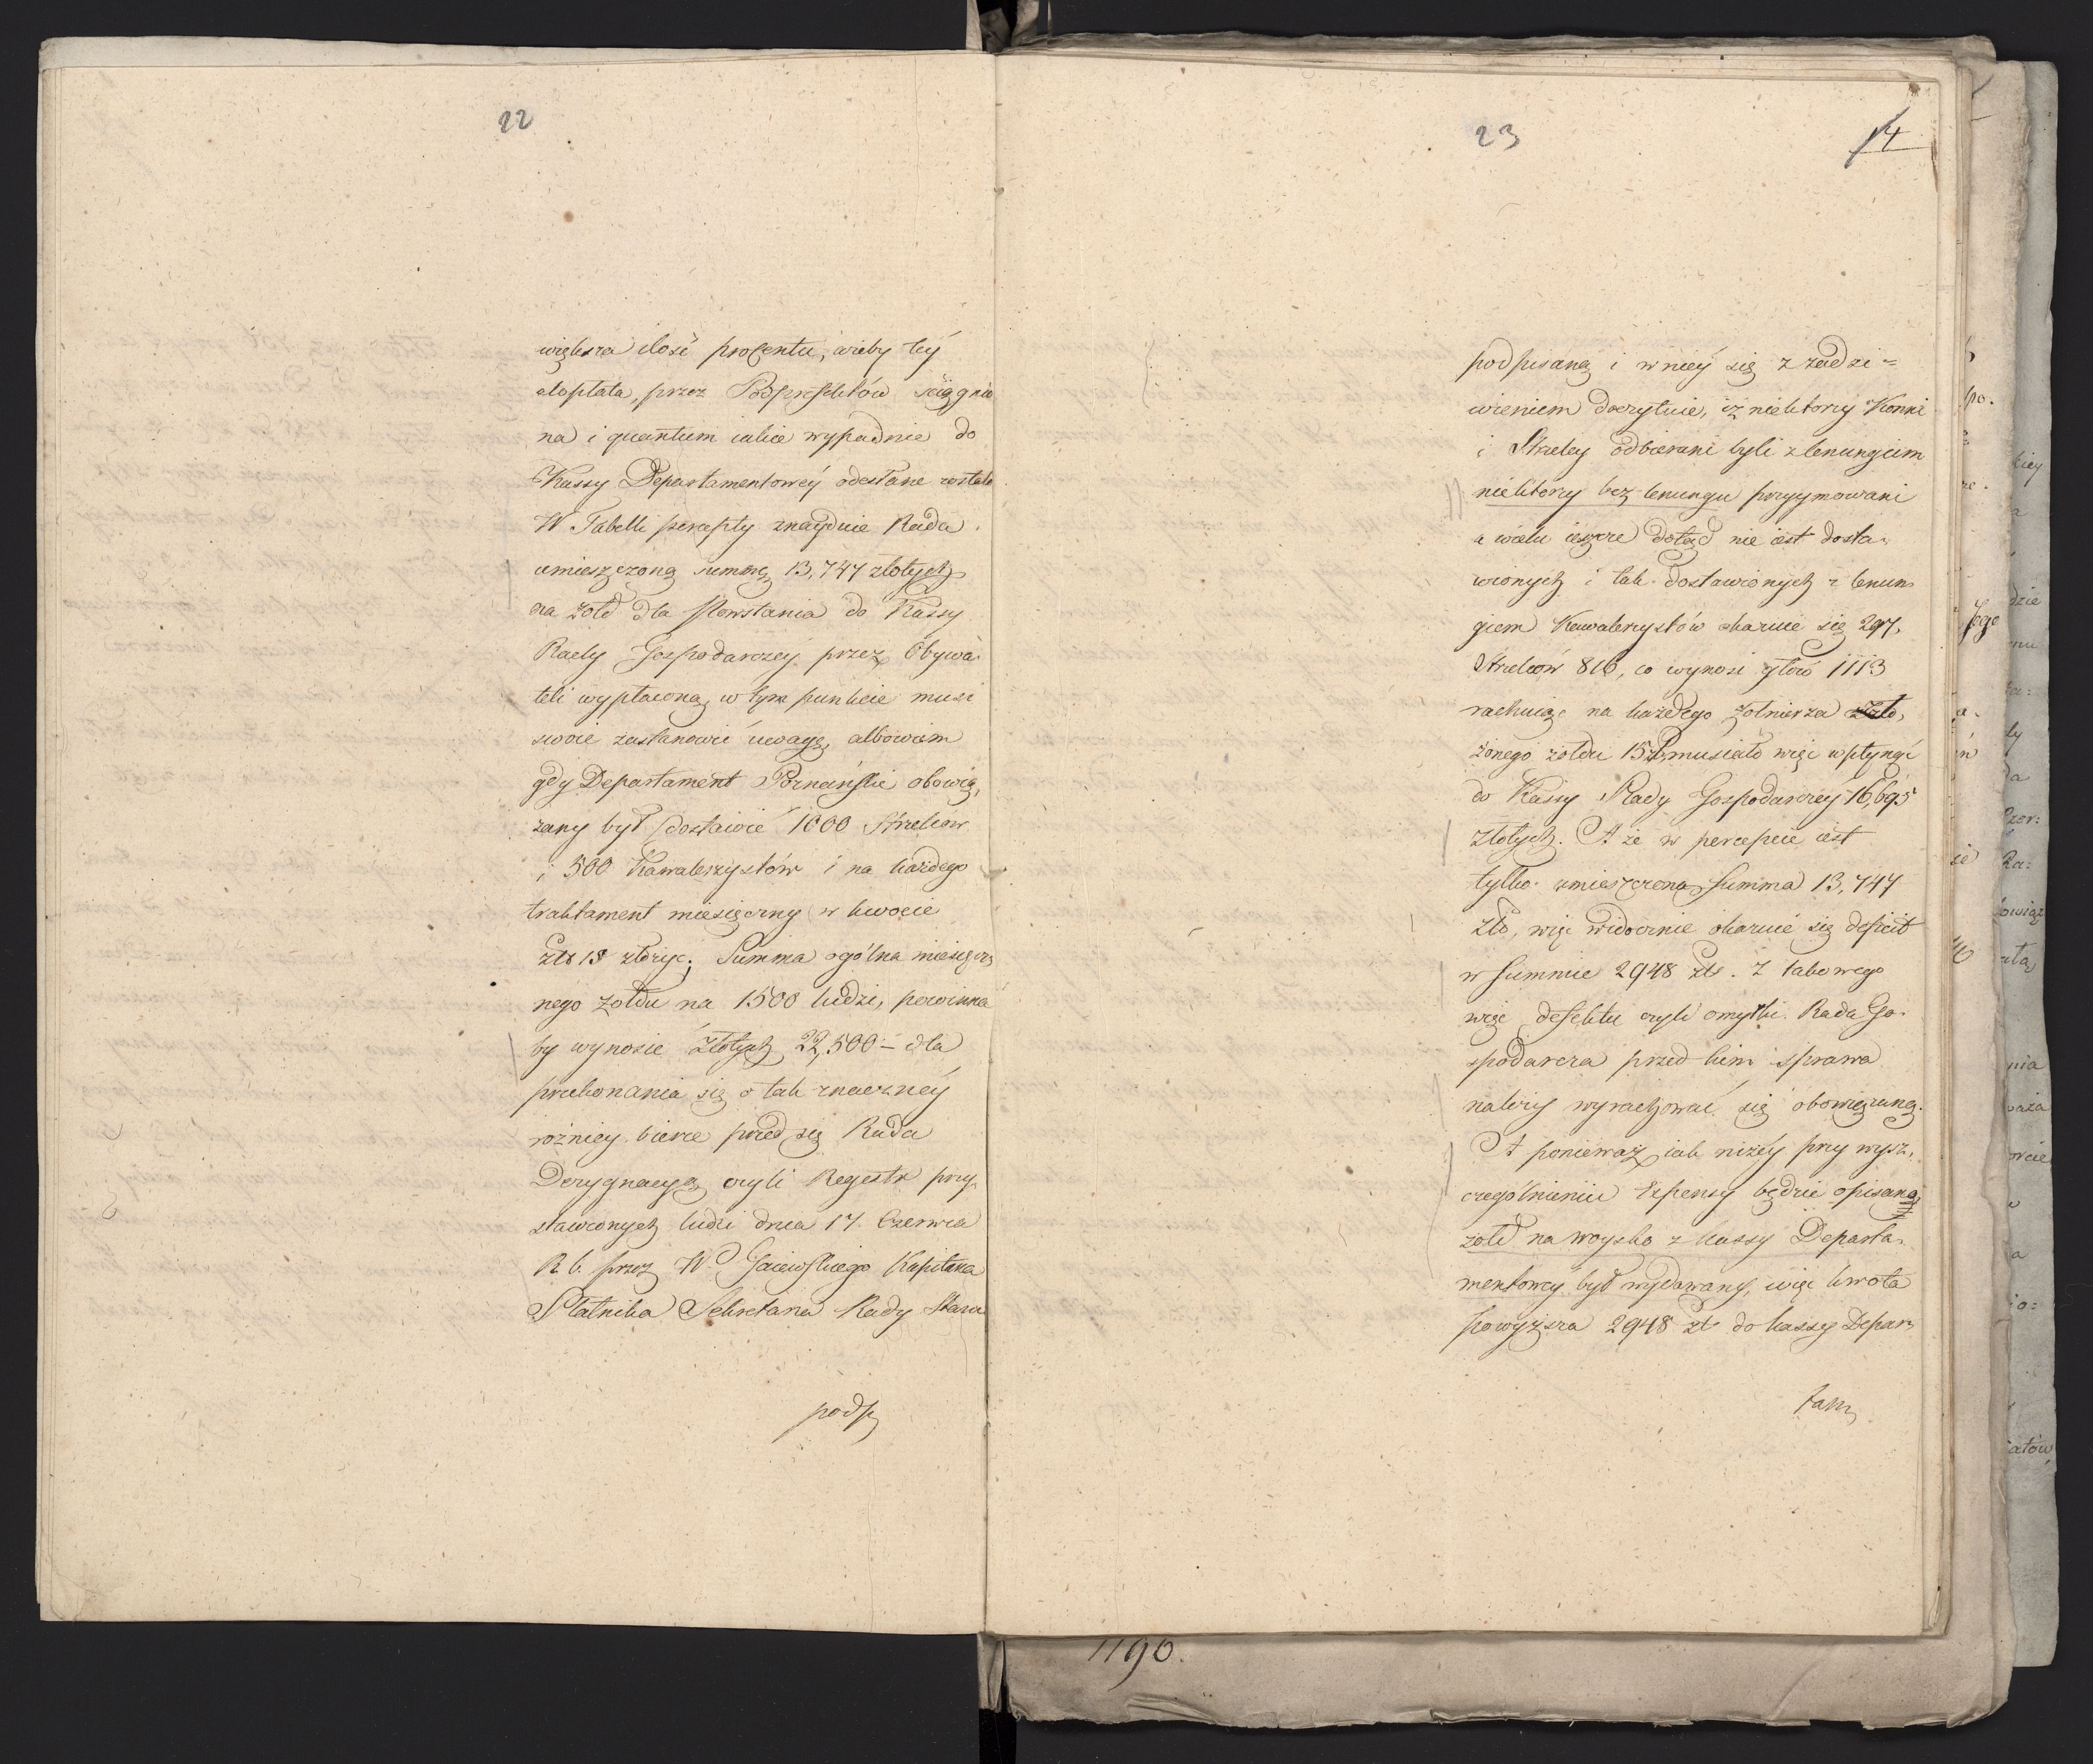 22
większa ilość procentu, ażeby tey
dopłata, przez Podprefektów ściągnio
na i quantum iakie wypadnie do
Kassy Departamentowéy odesłane zostało
W Tabelli percepty znayduie Rada
umieszczoną summę 13,747 złotych
na żołd dla Powstania do Kassy
Rady Gospodarczey przez Obywa-
teli wypłaconą, w tym punkcie musi
swoie zastanowić uwagę, albowiem
gdy Departament Poznański obowią,
zany był dostawić 1000 Strzelców
i 500 Kawalerzystów i na każdego
traktament miesięczny w kwocie
złt 15 złożyć; Summa ogólna miesięcz
nego żołdu na 1500 ludzi, powinna
by wynosić złotych 22,500 – dla
przekonania się o tak znaczney
rożnicy bierze przed się Rada
Dezygnacyą czyli Regestr przy
stawionych ludzi dnia 17. Czerwca
R. b. przez W. Gaiewskiego Kapitana
Płatnika Sekretarza Rady Stanu
podp
23
14
podpisaną i w niey się z zadzi=
wieniem doczytuie, iż niektorzy Konni
i Strzelcy odbierani byli z lenungiem
niektorzy bez lenungu przyymowani
a wielu ieszcze dotąd nie iest dosta-
wionych i tak dostawionych z lenun
giem Kawalerzystów okazuie się 297,
Strzelców 816, co wynosi głow 1113
rachuiąc na każdego żołnierza złło,
żonego żołdu 15 zł, musiało więc wpłynąć
do Kassy Rady Gospodarczey 16,695
złotych. A że w percepcie iest
tylko umieszczona Summa 13,747
złt, więc widocznie okazuie się deficit
w Summie 2948 złt. Z takowego
więc defektu czyli omyłki Rada Go-
spodarcza przed kim sprawa
należy wyrachować się obowiązaną.
A ponieważ iak niżey przy wysz,
czególnieniu Expensy będzie opisaną
żołd na woysko z kassy Departa-
mentowey był wydawany, więc kwota
powyższa 2948 zł do kassy Depar,
tam,
1190.